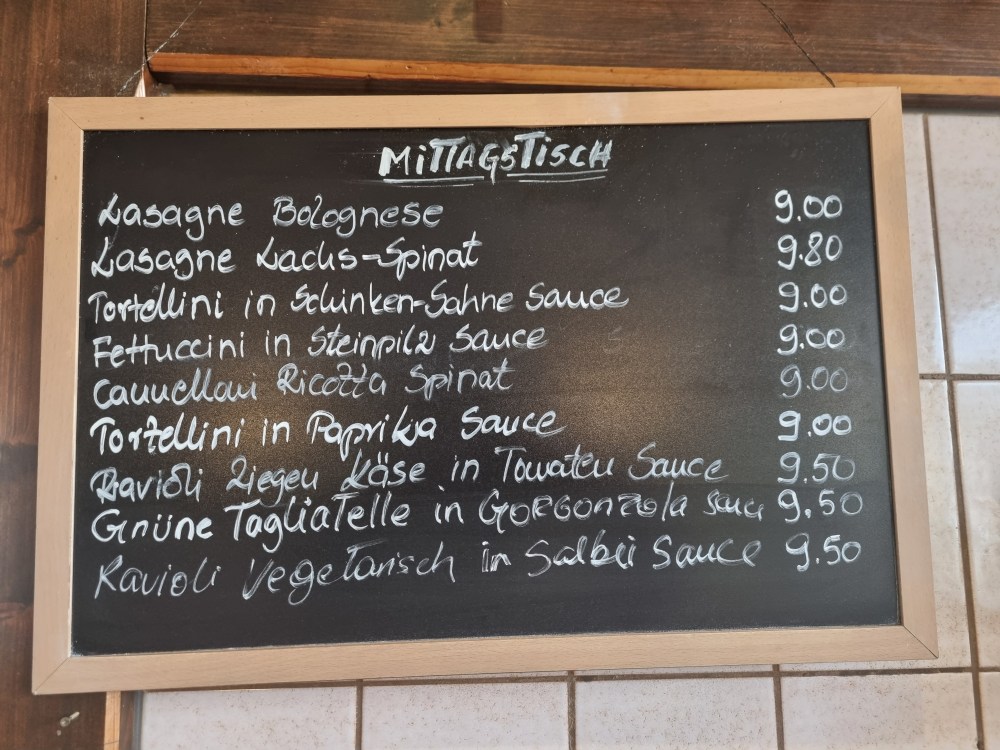 MiTTAGSTiSCH
Lasagne Bolognese 9.00
Lasagne Lachs-Spinat 9.80
Tortellini in Schinken-Sahne Sauce 9.00
Fettuccini in Steinpilz Sauce 9.00
Cannelloni Ricotta Spinat 9.00
Tortellini in Paprika Sauce 9.00
Ravioli Ziegen Käse in Tomaten Sauce 9.50
Grüne TagliaTelle in GORGONzola sauce 9.50
Ravioli Vegetarisch in Salbei Sauce 9.50